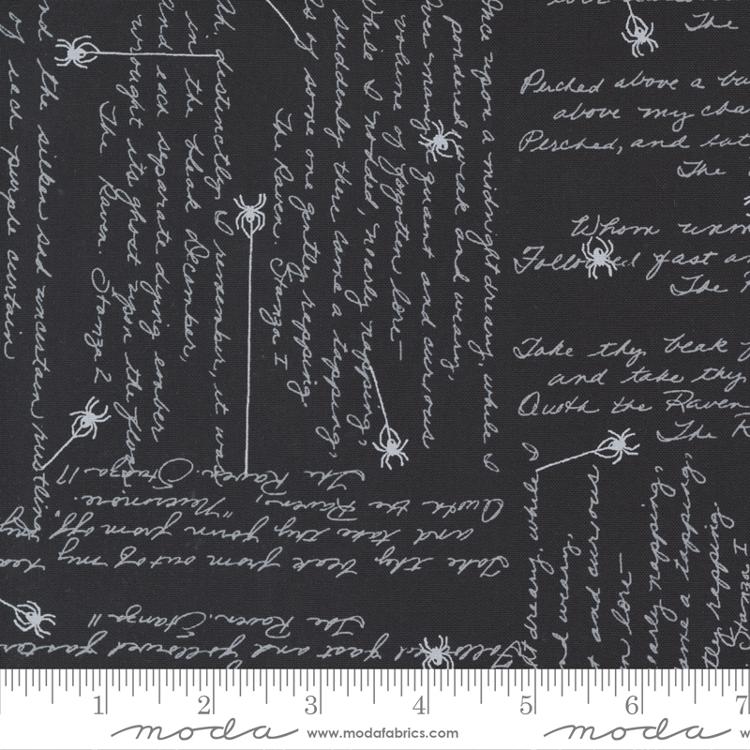 The
Perched above a
above my
Perched, and
The
Whom
Followed fast
The
Take thy beak
and take thy
Quoth the Raven
The
Once upon a midnight dreary, while I
pondered weak and weary,
Over many a quaint and curious
volume of forgotten lore—
While I nodded, nearly napping,
suddenly there came a tapping,
As of some one gently rapping,
The Raven. Stanza I
Ah, distinctly I remember, it was
in the bleak December,
And each separate dying ember
wrought its ghost upon the floor
The Raven. Stanza 2
And the silken sad uncertain rustling
of each purple curtain
Take thy beak from out of my
and take thy form from off
Quoth the Raven, "Nevermore."
The Raven. Stanza 17
Followed fast and followed faster
The Raven. Stanza 11
dreary,
and weary,
and curious
lore—
nearly napping,
came a tapping,
rapping,
1 2 3 4 5 6 7
moda www.modafabrics.com moda www.modafabrics.com